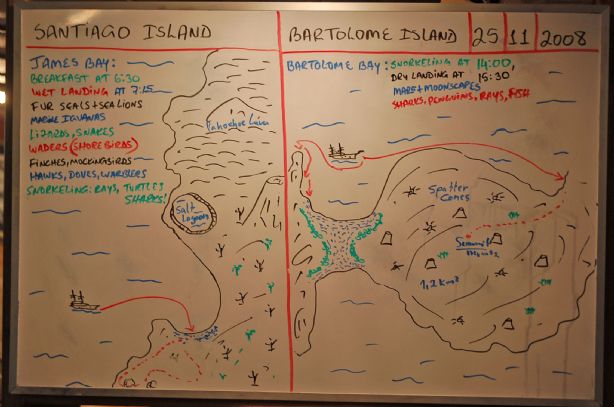 SANTIAGO ISLAND
JAMES BAY:
BREAKFAST AT 6:30
WET LANDING AT 7:15
FUR SEALS + SEA LIONS
MARINE IGUANAS
LIZARDS, SNAKES
WADERS (SHORE BIRDS)
FINCHES, MOCKINGBIRDS
HAWKS, DOVES, WARBLERS
SNORKELING: RAYS, TURTLES
SHARKS!
Pahoehoe Lava
Salt
Lagoon
BARTOLOME ISLAND
25 11 2008
BARTOLOME BAY: SNORKELING AT 14:00,
DRY LANDING AT 15:30
MARS + MOONSCAPES
SHARKS, PENGUINS, RAYS, FISH
Spatter
Cones
Summit
1,2 km²